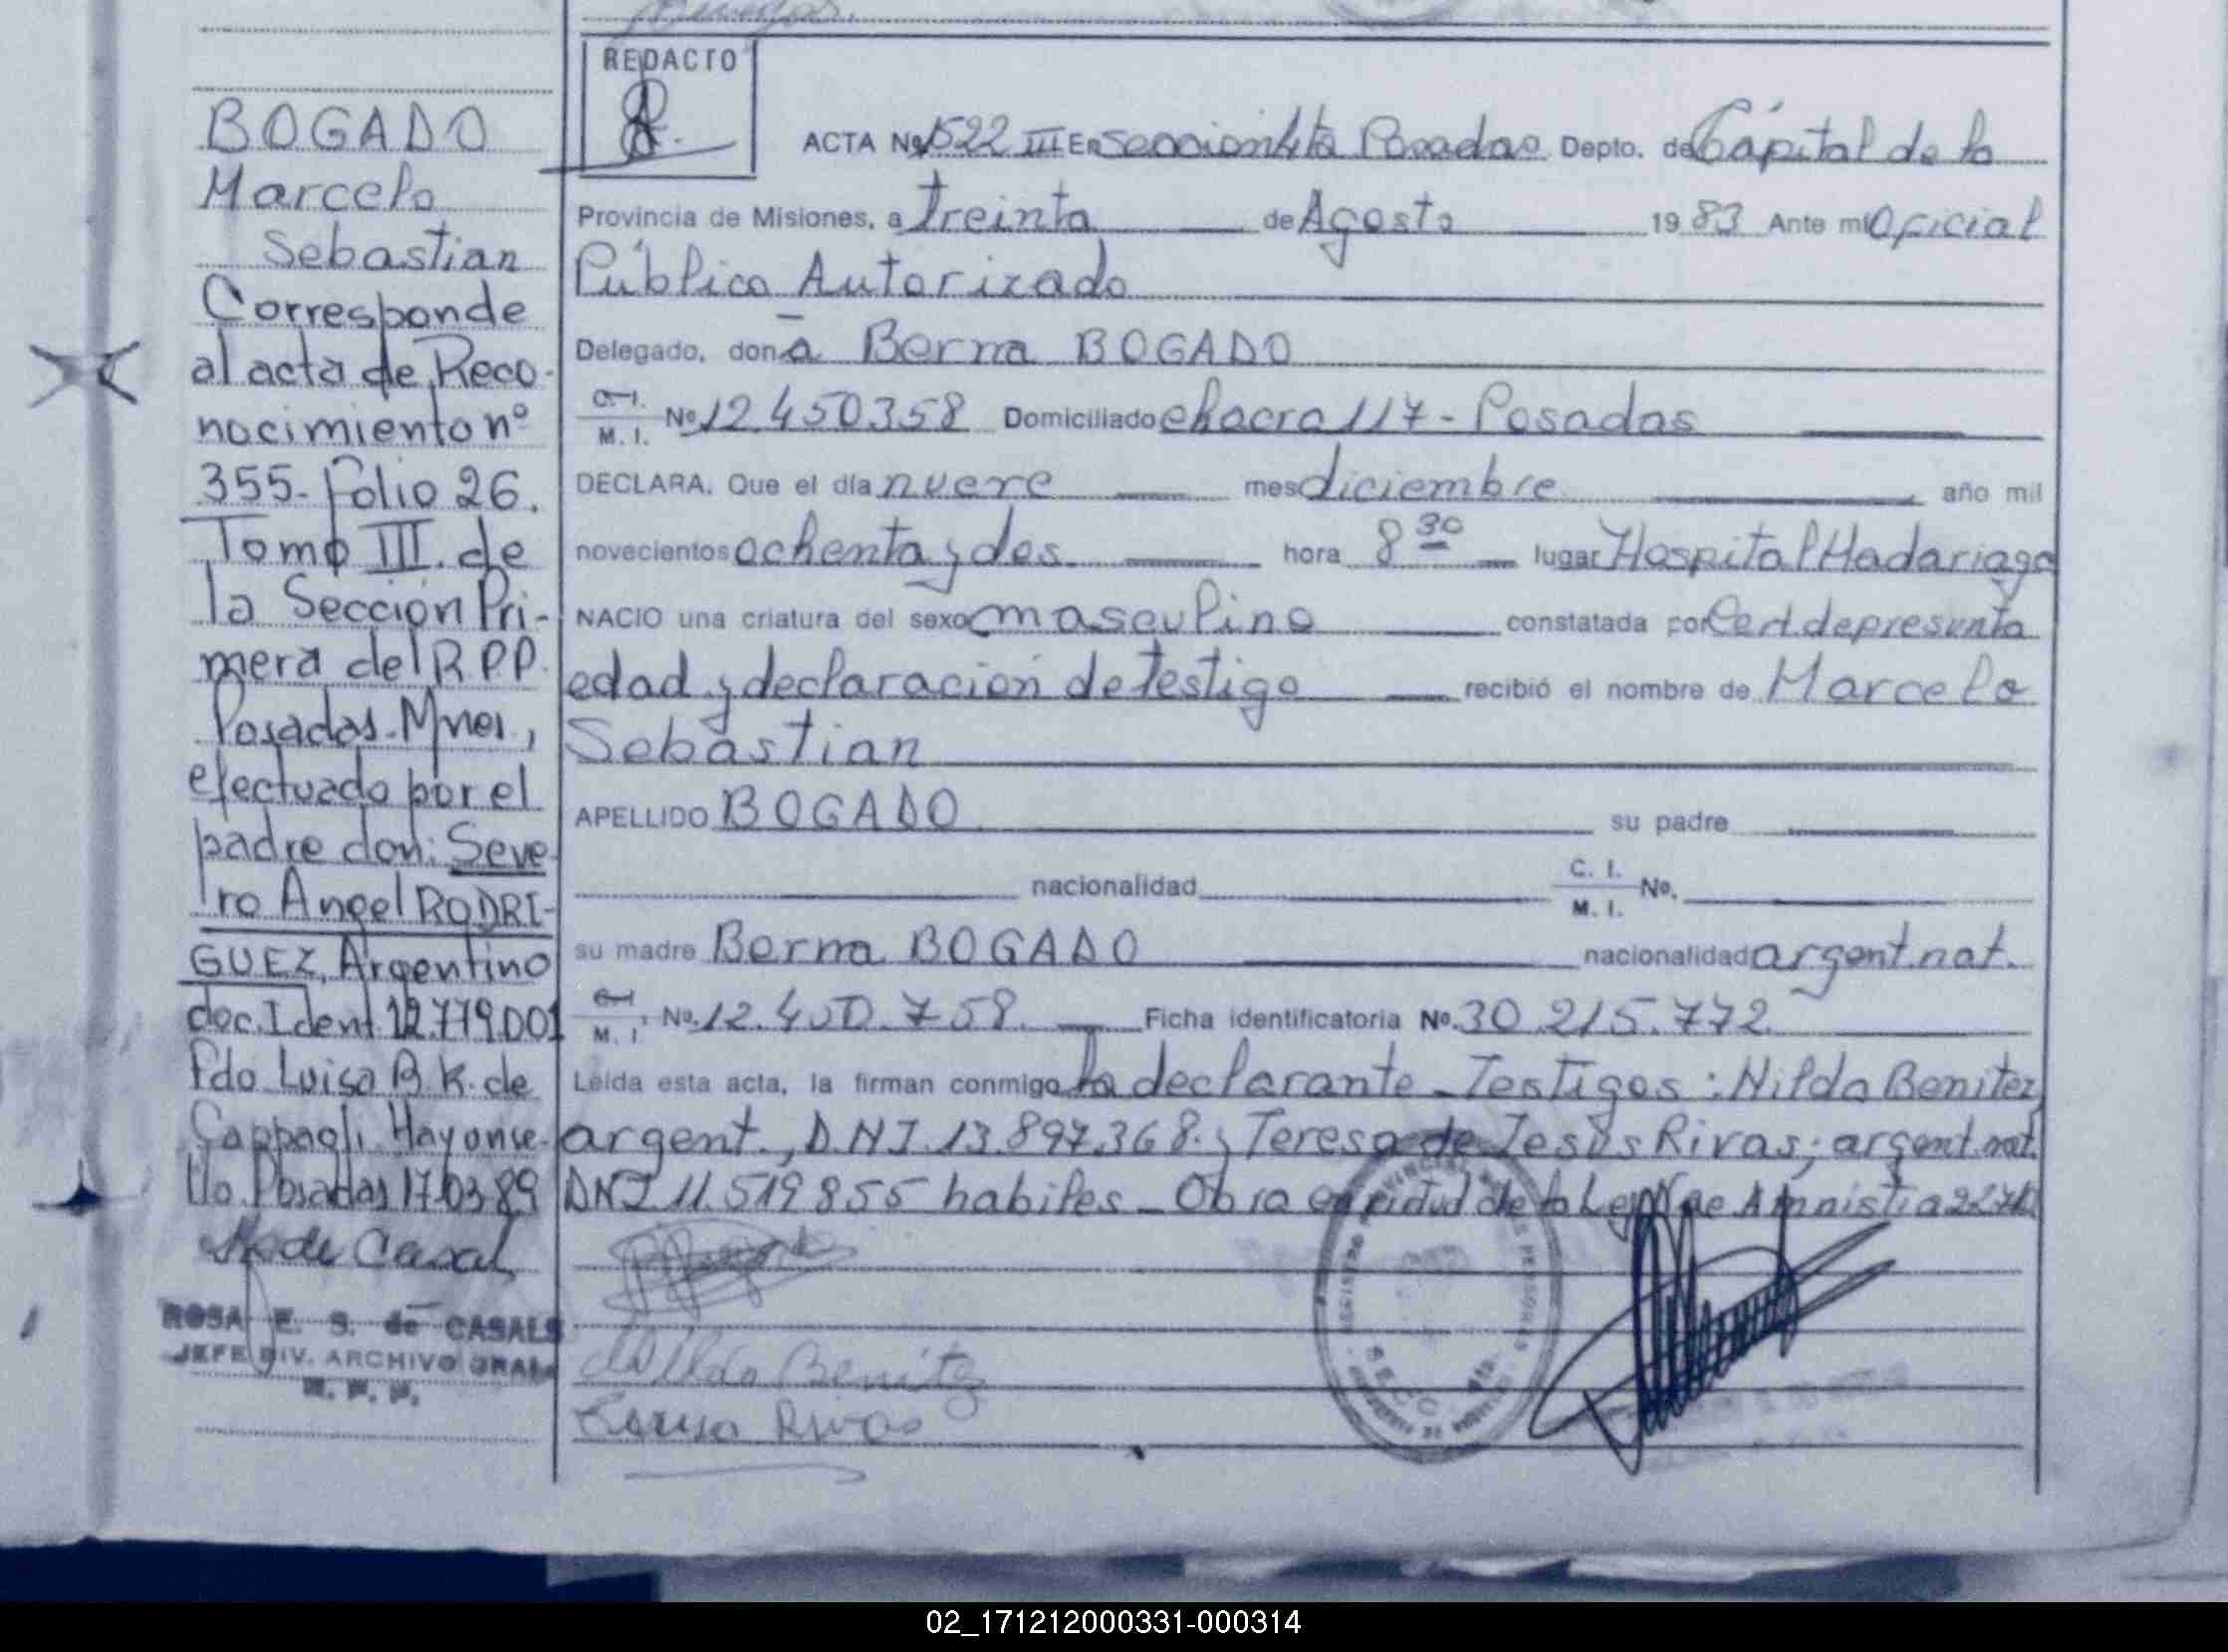 BOGADO
Marcelo
Sebastian
Corresponde
al acta de Reco-
nocimiento nº
355- Folio 26.
Tomo III. de
la Sección Pri-
mera del R.P.P.
Posadas-Mnes,
efectuado por el
padre don: Seve
ro Angel RODRI-
GUEZ, Argentino
doc. Ident. 12.779.001
Fdo Luisa B. K. de
Cappagli. Hay un se-
llo. Posadas 17.03.89
ROSA E. S. de CASALS
JEFE DIV. ARCHIVO GRAL.
R. P. P.
REDACTO
ACTA Nº 1522 III En sección 4ta Posadas Depto. de Cápital de la
Provincia de Misiones, a treinta de Agosto 19 83 Ante mí Oficial
Público Autorizado
Delegado, don a Berna BOGADO
C. I. M. I. Nº 12.450358 Domiciliado chacra 117 - Posadas
DECLARA. Que el día nueve mes diciembre año mil
novecientos ochenta y dos hora 8 30 lugar Hospital Madariaga
NACIO una criatura del sexo masculino constatada por Cert de presunta
edad y declaración de testigo recibió el nombre de Marcelo
Sebastian
APELLIDO BOGADO su padre
nacionalidad C. I. M. I. Nº.
su madre Berna BOGADO nacionalidad argent. nat.
C. I. M. I. Nº. 12.450.758. Ficha identificatoria Nº. 30.215.772
Leída esta acta, la firman conmigo la declarante - Testigos: Nilda Benitez
argent., D.N.I. 13.897.368. y Teresa de Jesús Rivas; argent. nat.
DNI 11.519855 habiles - Obra en virtud de la Ley de Amnistia
Nilda Benitez
Teresa Rivas
02_171212000331-000314